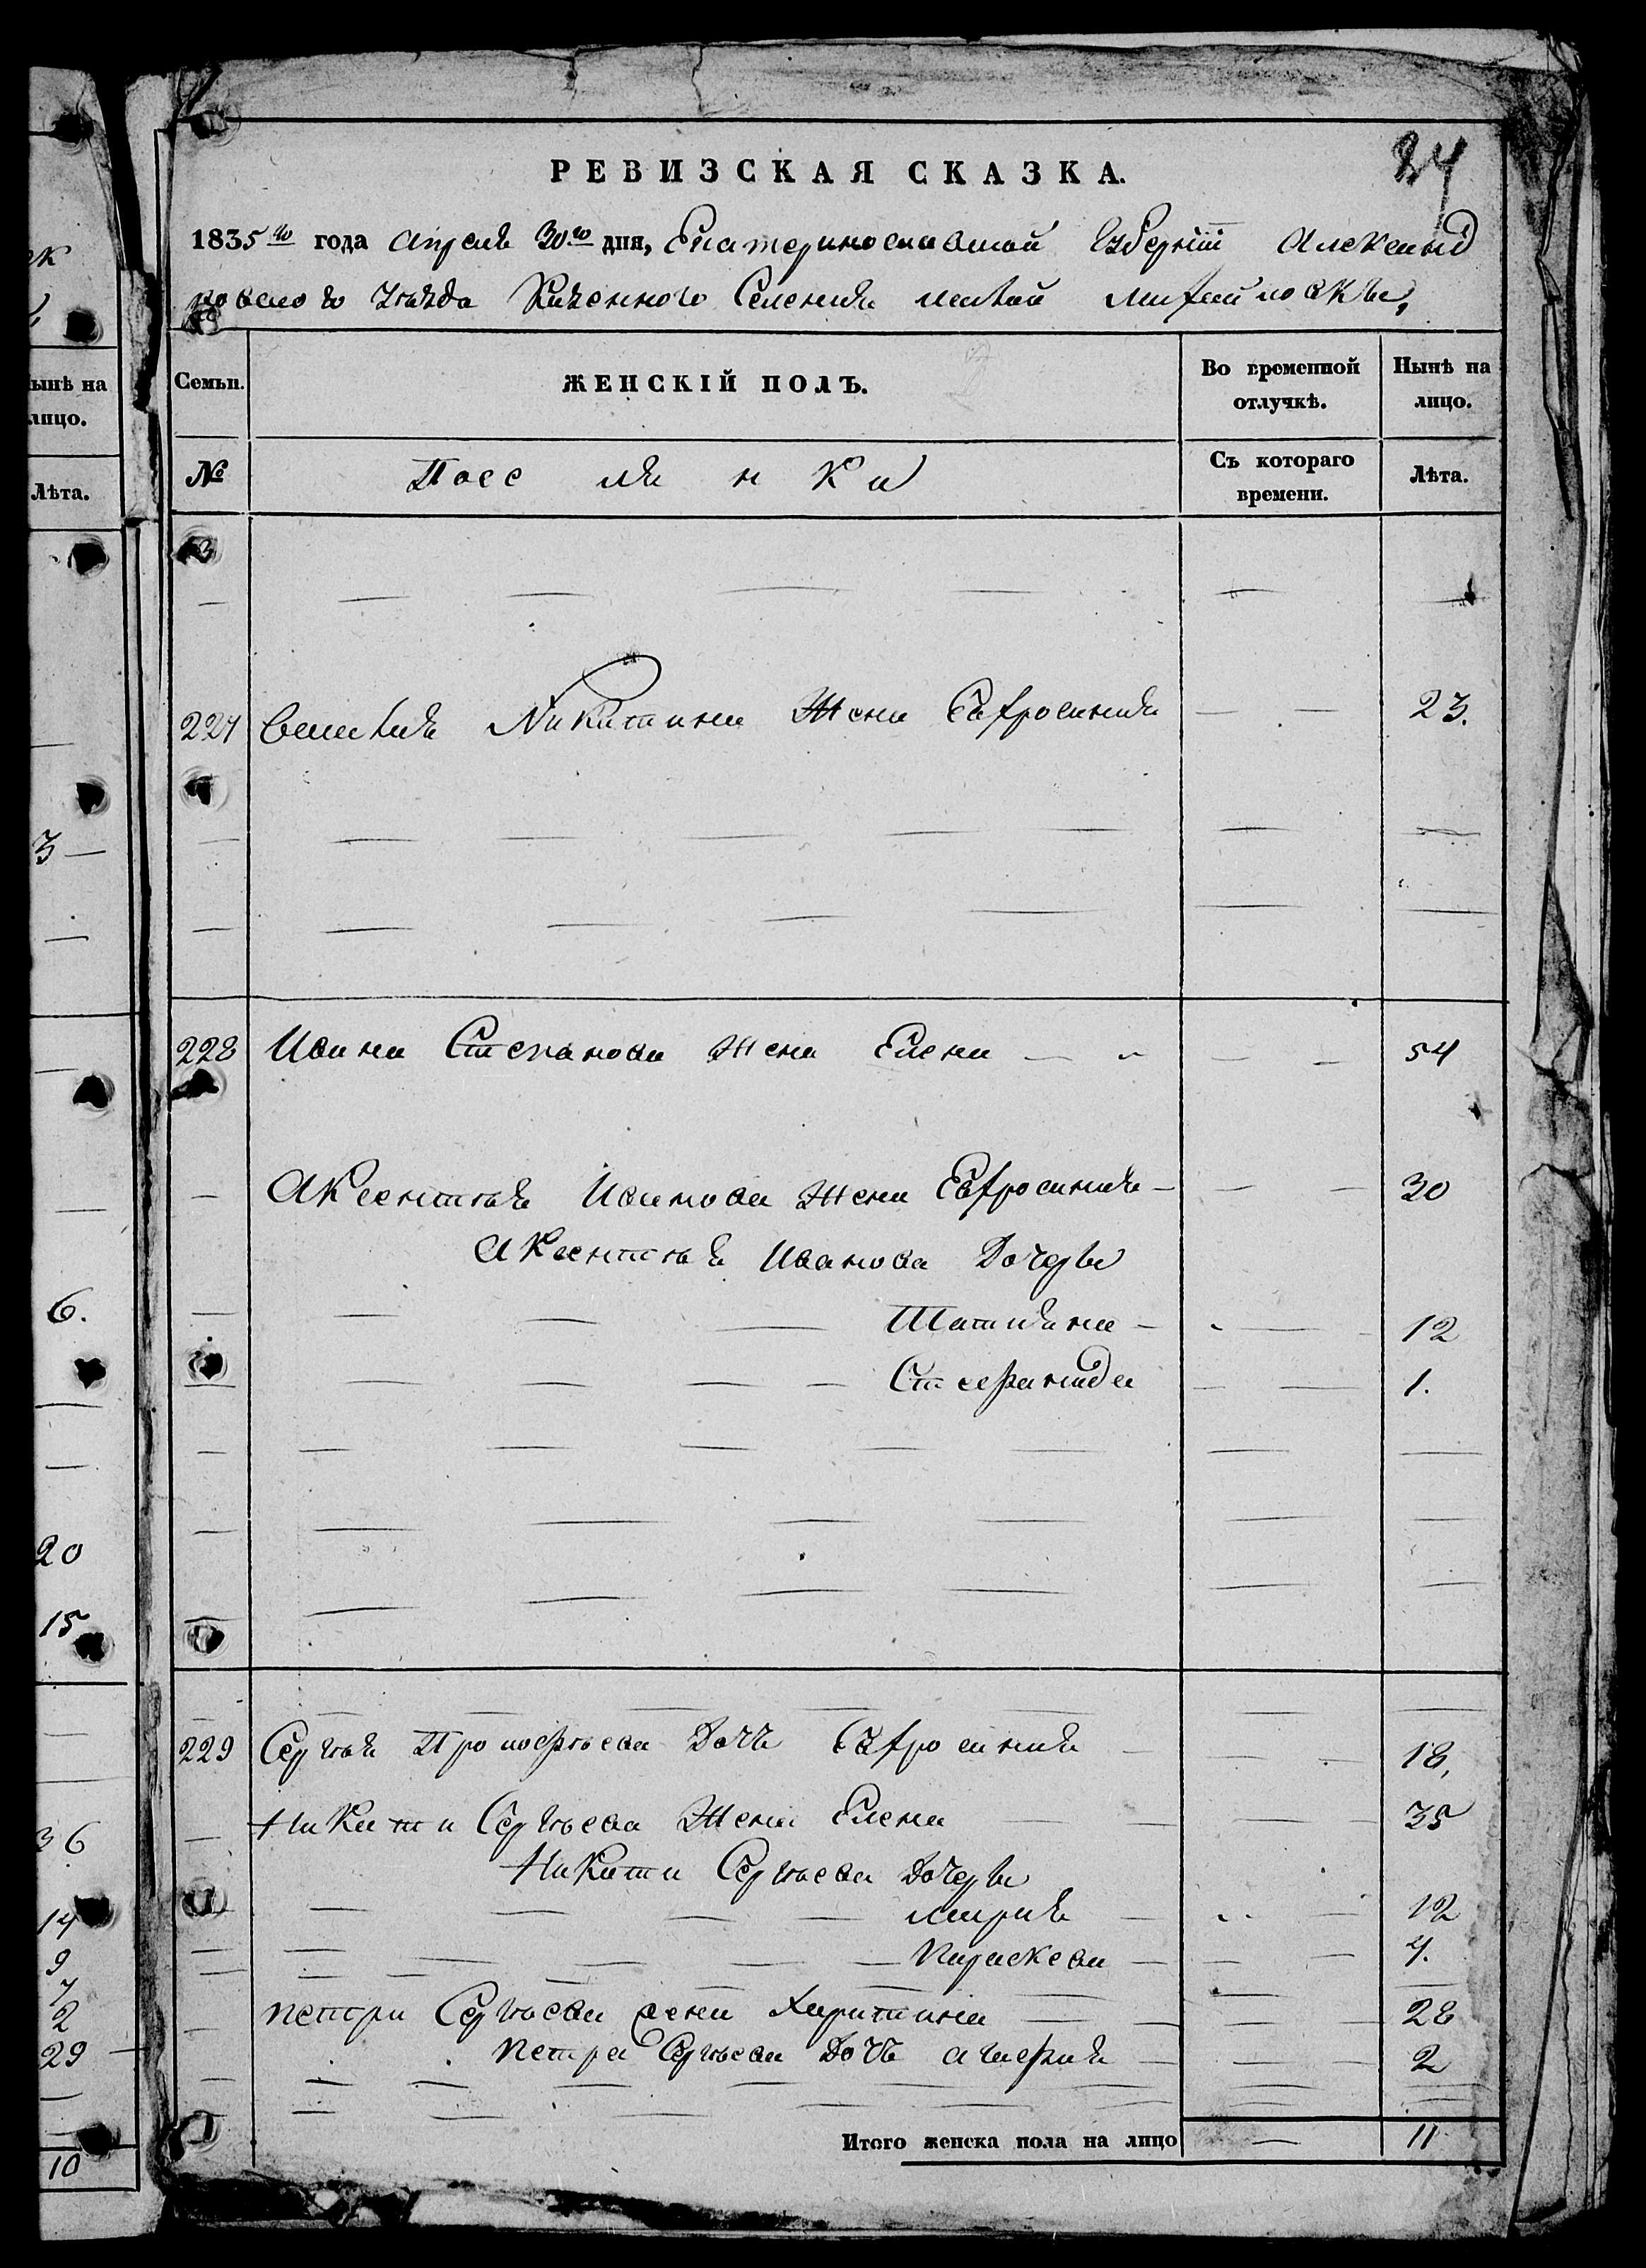 24
РЕВИЗСКАЯ СКАЗКА.
1835го года Апреля 30го дня, Екатеринославской Губернии Александ
ровского Уезда Казенного Селения малой михайловки,
Семьи.
ЖЕНСКІЙ ПОЛЪ.
Во временной отлучкѣ.
Нынѣ на лицо.
№
Съ котораго времени.
Лѣта.
227 Никитина Жена Евфросиния — — 23.
228 Ивана Степанова Жена Елена — — 54
Аксентия Иванова Жена Евфросиния — — 30
Аксентия Иванова Дочери
Татияна — 12
Стефанида — 1.
229 Сергѣя Прокофьева Дочь Евфросиния — 18,
Никити Сергѣева Жена Елена — 35
Никити Сергѣева Дочери
Мария — 12
Параскева — 4.
Петра Сергѣева Жена Харитина — 28
Петра Сергѣева Дочь Агафия — 2
Итого женска пола на лицо — 11
ынѣ на
лицо.
Лѣта.
3
6.
20
15
36
14
9
7
2
29
10